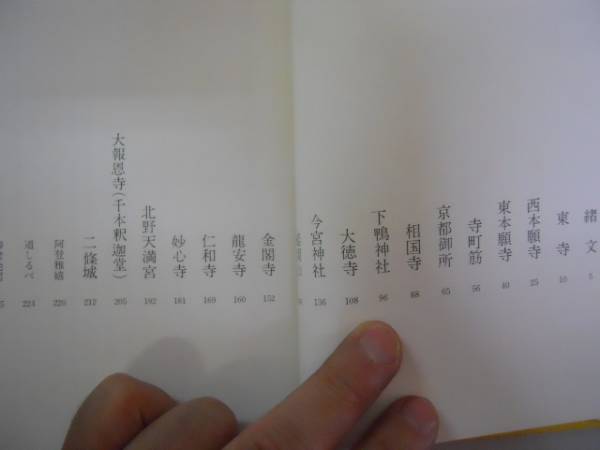 緒文 5
東寺 10
西本願寺 25
東本願寺 40
寺町筋 56
京都御所 65
相国寺 68
下鴨神社 96
大徳寺 108
今宮神社 136
金閣寺 152
龍安寺 160
仁和寺 169
妙心寺 181
北野天満宮 192
大報恩寺(千本釈迦堂) 205
二條城 212
阿登雅嬉 220
道しるべ 224